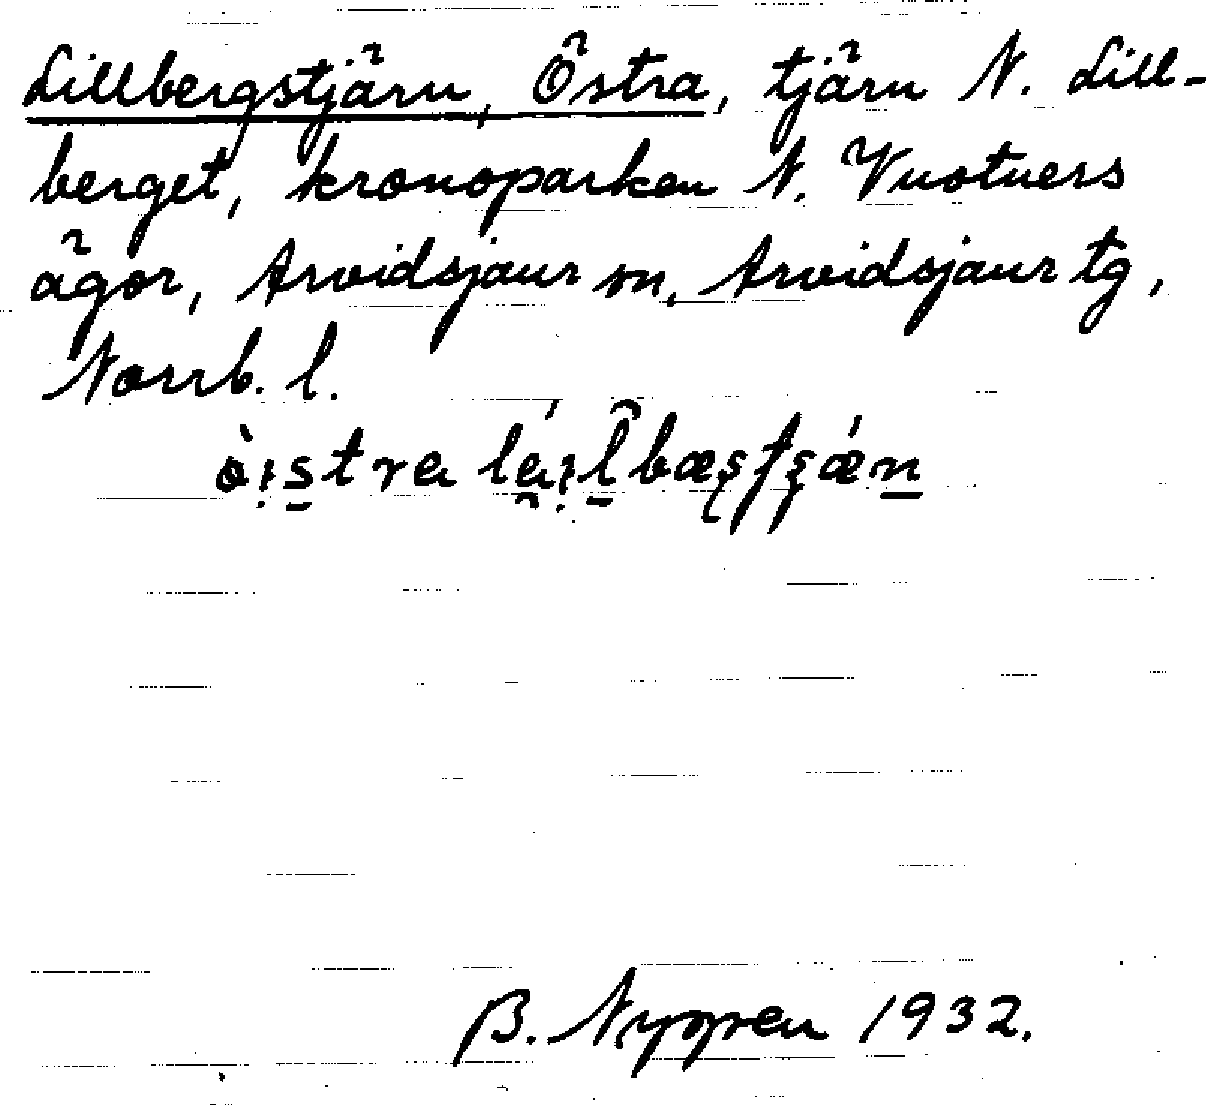 Lillbergstjärn, Östra, tjärn N. Lill-
berget, kronoparken N. Vuotners
ägor, Arvidsjaur sn, Arvidsjaur tg,
Norrb. l.
östra
B. Nygren 1932.